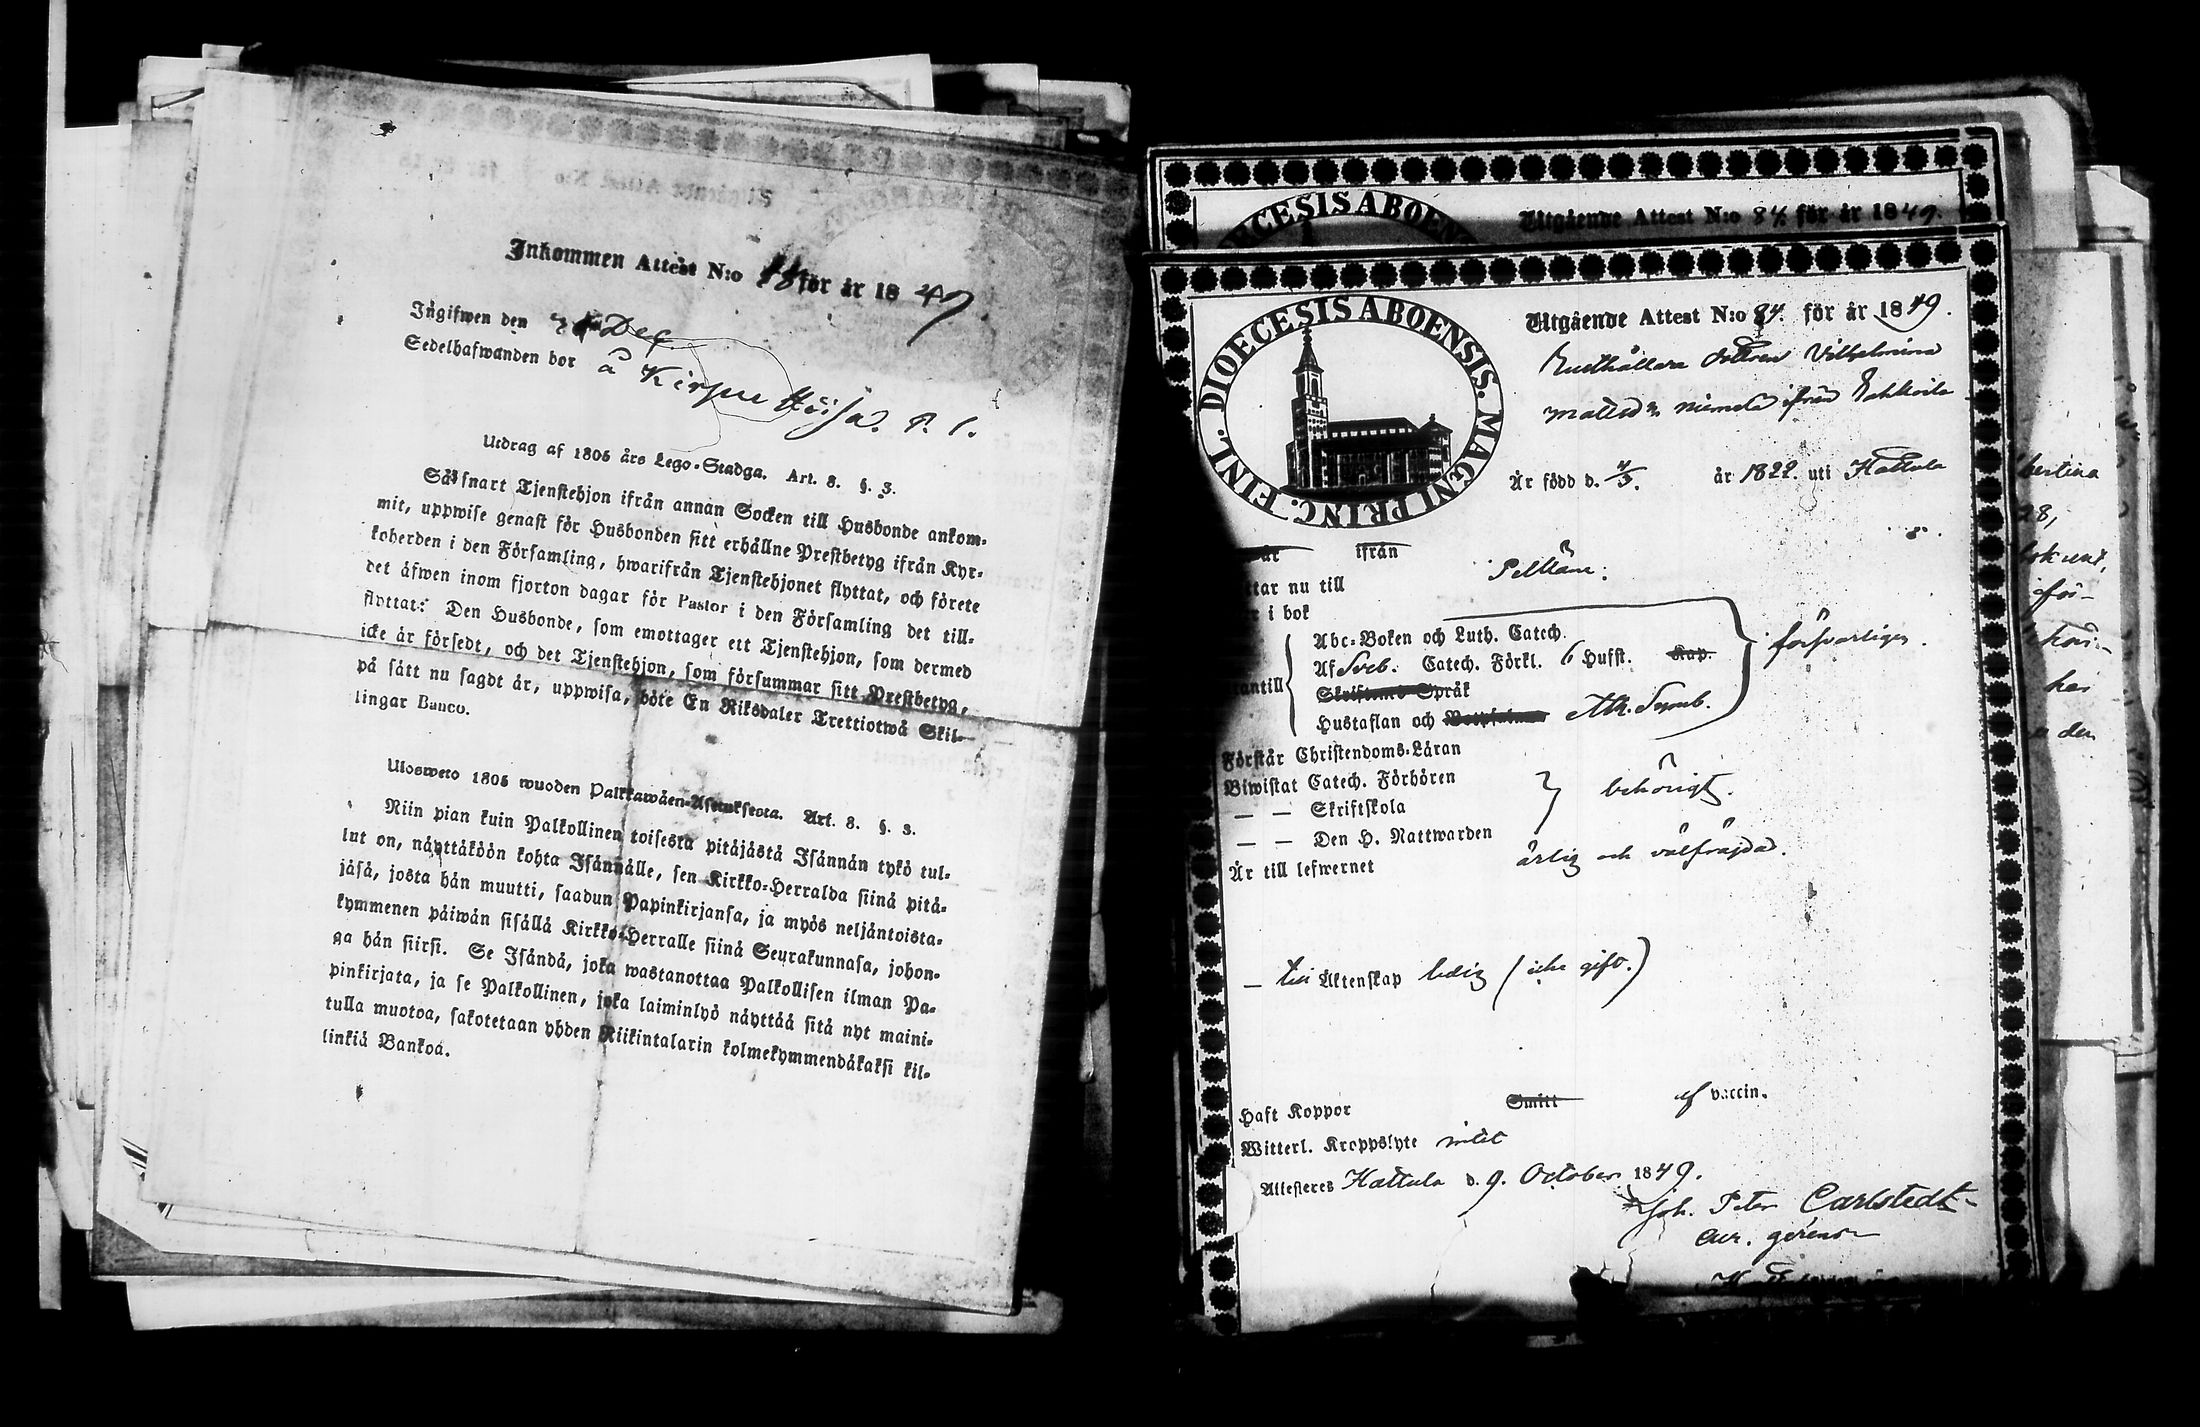 Inkommen Attest N:o för år 1849
Ingifwen den Dec
Sedelhafwanden bor å
Utdrag af 1805 års Lego-Stadga. Art. 8. §. 3.
Så snart Tjenstehjon ifrån annan Socken till Husbonde ankom-
mit, uppwise genast för Husbonden sitt erhållne Prestbetyg ifrån Kyr-
koherden i den Församling, hwarifrån Tjenstehjonet flyttat, och förete
det äfwen inom fjorton dagar för Pastor i den Församling det till-
flyttat: Den Husbonde, som emottager ett Tjenstehjon, som dermed
icke är försedt, och det Tjenstehjon, som försummar sitt Prestbetyg,
på sätt nu sagdt är, uppwisa, böte En Riksdaler Trettiotwå Skil-
lingar Banco.
Ulosweto 1805 wuoden Palkkawäen-Asetuksesta. Art. 8. §. 3.
Niin pian kuin Palkollinen toisesta pitäjästä Isännän tykö tul-
lut on, näyttäköön kohta Isännälle, sen Kirkko-Herralda siinä pitä-
jäsä, josta hän muutti, saadun Papinkirjansa, ja myös neljäntoista-
kymmenen päiwän sisällä Kirkko-Herralle siinä Seurakunnasa, johon-
ga hän siirsi. Se Isändä, joka wastanottaa Palkollisen ilman Pa-
pinkirjata, ja se Palkollinen, joka laiminlyö näyttää sitä nyt maini-
tulla muotoa, sakotetaan yhden Riikintalarin kolmekymmendäkaksi kil-
linkiä Bankoa.
RCESIS ABOEN
Utgående Attest N:o 84 för år 1849.
DIOECESIS ABOENSIS. MAGNI PRINC. FINL.
Utgående Attest N:o 84. för år 1849.
Rusthållare dottren Vilhelmina
Mattsdr Niemela ifrån
Är född d. år 1822 uti Hattula
är ifrån
ttar nu till Pelkäne.
r i bok
Abc-Boken och Luth. Catech.
Af Sveb. Catech. Förkl. 6 Hufst. Kap. försvarligen.
antill Skriftens Språk
Hustaflan och Ath. Symb.
Förstår Christendoms-Läran
Biwistat Catech. Förhören behörigt.
— — Skriftskola
— — Den H. Nattwarden
Är till lefwernet ärlig och välfräjdad.
— till Äktenskap ledig (icke gift.)
Haft Koppor Smitt af vaccin.
Witterl. Kroppslyte intet
Attesteres Hattula d. 9. October 1849.
Joh. Peter Carlstedt
cur. gerens
bertina
28,
för-
har
den